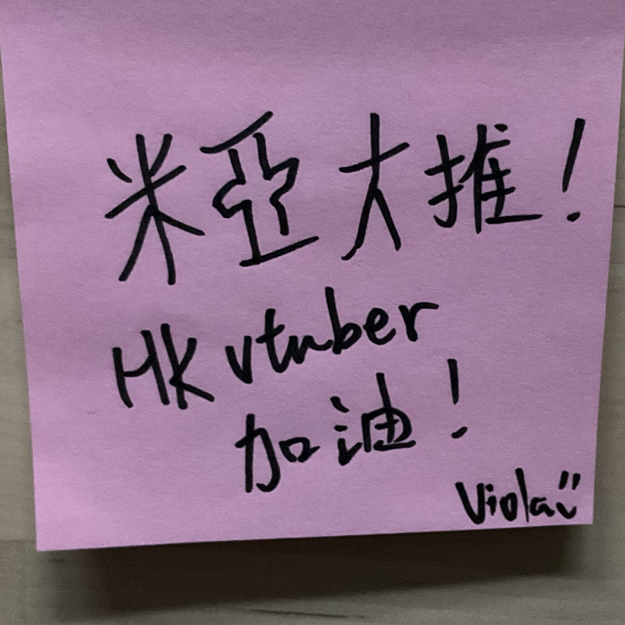 米亞大推！
HK vtuber
加油！
Viola